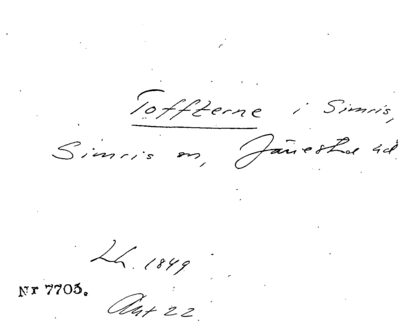 Toffterne i Simris,
Simris sn, Järrestad
Lh. 1849
Nr 7705.
Akt 22